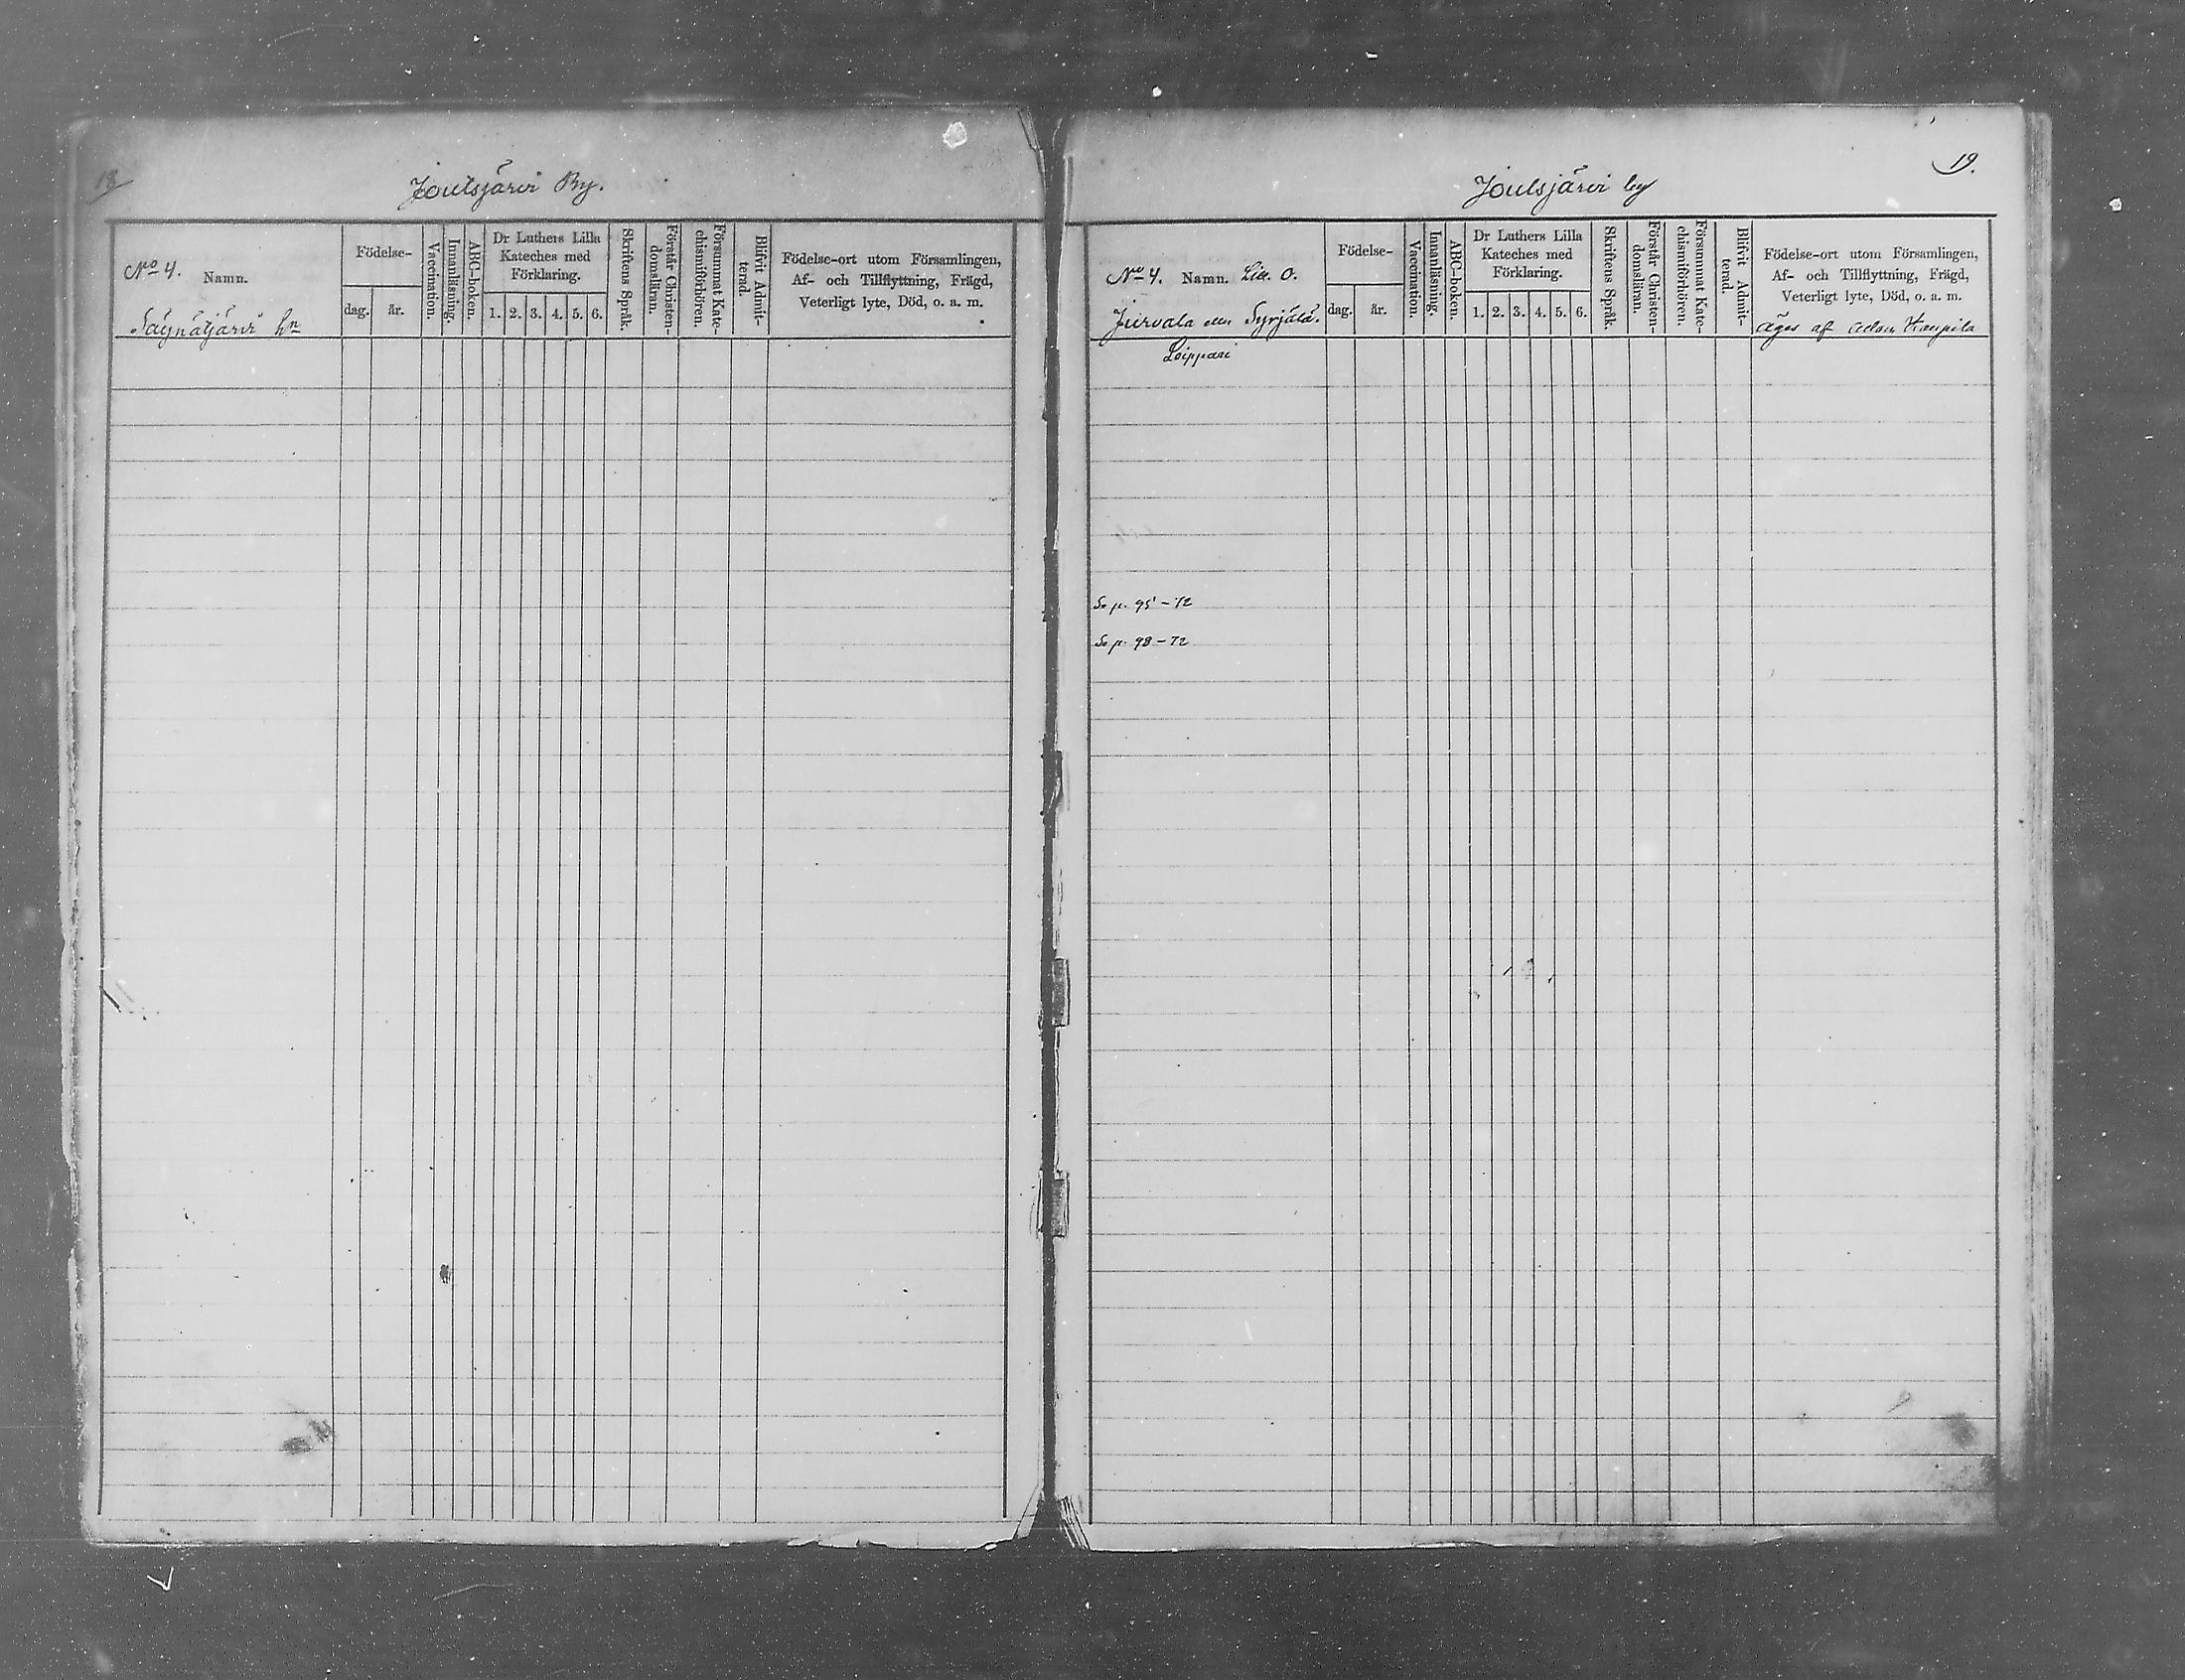 18
Joutsjärvi By.
No 4. Namn.
Säynätjärvi hn
Födelse-
dag.
år.
Vaccination.
Innanläsning.
ABC-boken.
Dr Luthers Lilla
Kateches med
Förklaring.
1. 2. 3. 4. 5. 6.
Skriftens Språk.
Förstår Christen-
domsläran.
Försummat Kate-
chismiförhören.
Blifvit Admit-
terad.
Födelse-ort utom Församlingen,
Af- och Tillflyttning, Frägd,
Veterligt lyte, Död, o. a. m.
19.
Joutsjärvi by
No 4. Namn. Litt. O.
Jurvala eller Syrjälä.
Födelse-
dag.
år.
Vaccination.
Innanläsning.
ABC-boken.
Dr Luthers Lilla
Kateches med
Förklaring.
1. 2. 3. 4. 5. 6.
Skriftens Språk.
Förstår Christen-
domsläran.
Försummat Kate-
chismiförhören.
Blifvit Admit-
terad.
Födelse-ort utom Församlingen,
Af- och Tillflyttning, Frägd,
Veterligt lyte, Död, o. a. m.
Äges af Adam Kaupila
Loippari
Se p. 95 - 72
Se p. 98 - 72